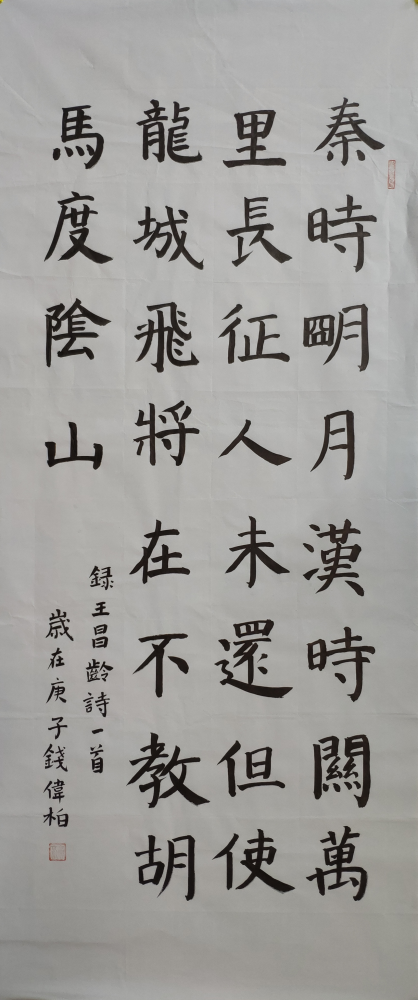 秦時明月漢時關萬
里長征人未還但使
龍城飛將在不教胡
馬度陰山
録王昌齡詩一首
歲在庚子錢偉柏